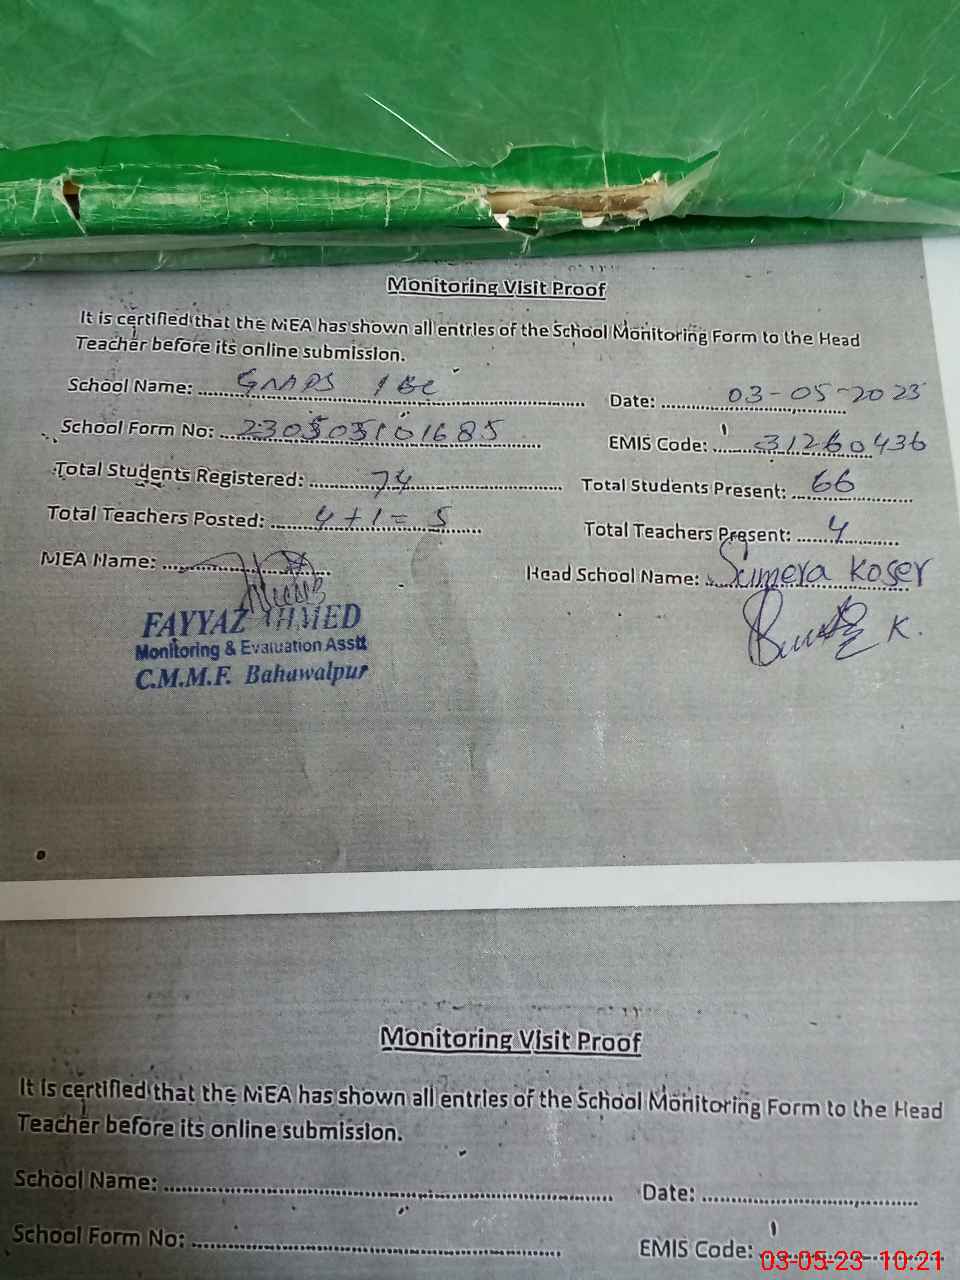 Monitoring Visit Proof
It is certified that the MEA has shown all entries of the School Monitoring Form to the Head
Teacher before its online submission.
School Name: GMMPS 1 BC Date: 03-05-2023
School Form No: 230503101685 EMIS Code: 31260436
Total Students Registered: 74 Total Students Present: 66
Total Teachers Posted: 4+1=5 Total Teachers Present: 4
MEA Name: Head School Name: Sumera Koser
FAYYAZ AHMED
Monitoring & Evaluation Asstt
C.M.M.F. Bahawalpur
K.
Monitoring Visit Proof
It is certified that the MEA has shown all entries of the School Monitoring Form to the Head
Teacher before its online submission.
School Name: Date:
School Form No: EMIS Code:
03-05-23 10:21